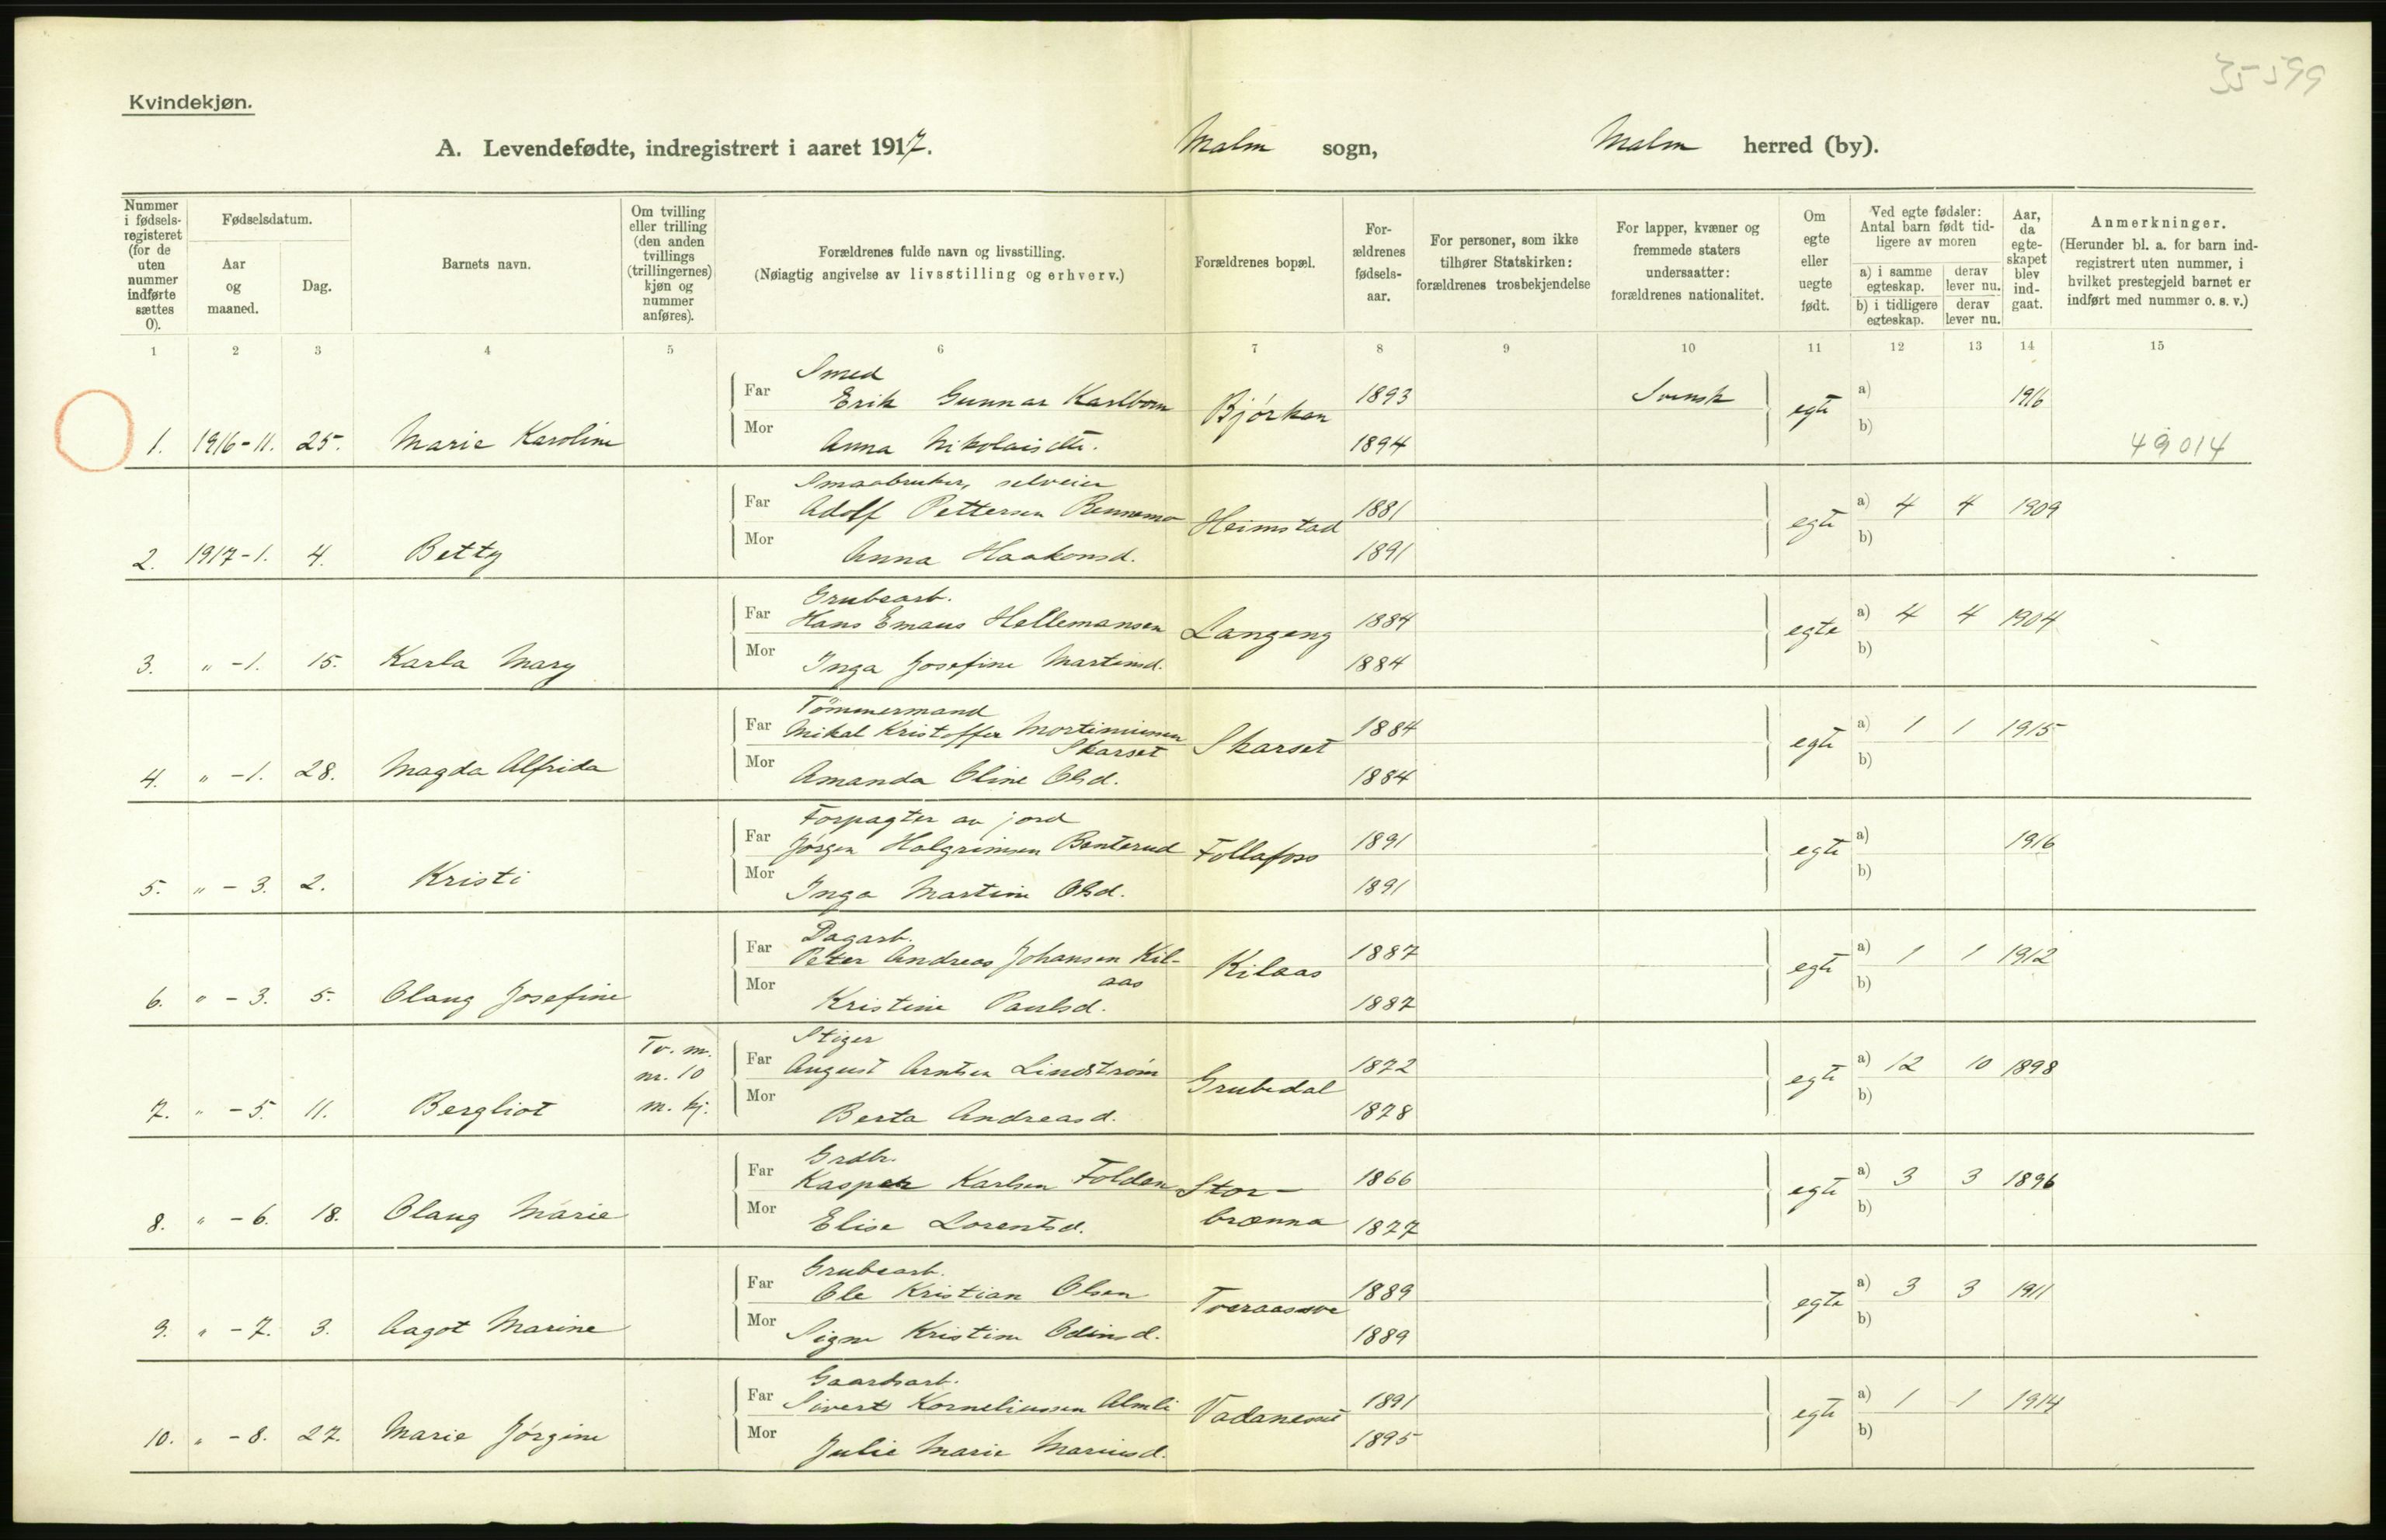 35-599
Kvindekjøn.
A. Levendefødte, indregistrert i aaret 1917. Malm sogn, Malm herred (by).
Nummer i fødsels-registeret (for de uten nummer indførte sættes 0).
Fødselsdatum.
Aar og maaned.
Dag.
Barnets navn.
Om tvilling eller trilling (den anden tvillings (trillingernes) kjøn og nummer anføres).
Forældrenes fulde navn og livsstilling.
(Nøiagtig angivelse av livsstilling og erhverv.)
Forældrenes bopæl.
For-ældrenes fødsels-aar.
For personer, som ikke tilhører Statskirken: forældrenes trosbekjendelse
For lapper, kvæner og fremmede staters undersaatter: forældrenes nationalitet.
Om egte eller uegte født.
Ved egte fødsler: Antal barn født tid-ligere av moren
a) i samme egteskap. derav lever nu.
b) i tidligere egteskap. derav lever nu.
Aar, da egte-skapet blev ind-gaat.
Anmerkninger.
(Herunder bl. a. for barn ind-registrert uten nummer, i hvilket prestegjeld barnet er indført med nummer o. s. v.)
1 2 3 4 5 6 7 8 9 10 11 12 13 14 15
Smed
Far Erik Gunnar Karlbom Bjørkan 1893 Svensk egte a) 1916
1. 1916-11. 25. Marie Karoline Mor Anna Nikolaisdtr. 1894 b) 49014
Smaabruker, selveier
Far Adolf Pettersen Rennemo Heimstad 1881 egte a) 4 4 1909
2. 1917-1. 4. Betty Mor Anna Haakonsd. 1891 b)
Grubearb.
Far Hans Emaus Hellemansen Langeng 1884 egte a) 4 4 1904
3. " -1. 15. Karla Mary Mor Inga Josefine Martinsd. 1884 b)
Tömmermand
Far Mikal Kristoffer Mortimiusen Skarset Skarset 1884 egte a) 1 1 1915
4. " -1. 28. Magda Alfrida Mor Amanda Oline Olsd. 1884 b)
Forpagter av jord
Far Jørgen Halgrimsen Benterud Follafoss 1891 egte a) 1916
5. " - 3. 2. Kristi Mor Inga Martine Olsd. 1891 b)
Dagarb.
Far Peter Andreas Johansen Kil-aas Kilaas 1887 egte a) 1 1 1912
6. " - 3. 5. Olaug Josefine Mor Kristine Paulsd. 1887 b)
Tv. m. nr. 10 m. kj.
Stiger
Far August Arntsen Lindstrøm Grubedal 1872 egte a) 12 10 1898
7. " - 5. 11. Bergliot Mor Berta Andreasd. 1878 b)
Grdbr.
Far Kasper Karlsen Folden Stor-brænna 1866 egte a) 3 3 1896
8. " - 6. 18. Olaug Marie Mor Elise Lorentsd. 1877 b)
Grubearb.
Far Ole Kristian Olsen 1889 egte a) 3 3 1911
9. " - 7. 3. Aagot Marine Mor Signe Kristine Odinsd. 1889 b)
Gaardsarb.
Far Sivert Korneliussen Almli 1891 egte a) 1 1 1914
10. " - 8. 27. Marie Jørgine Mor Julie Marie Mariusd. 1895 b)